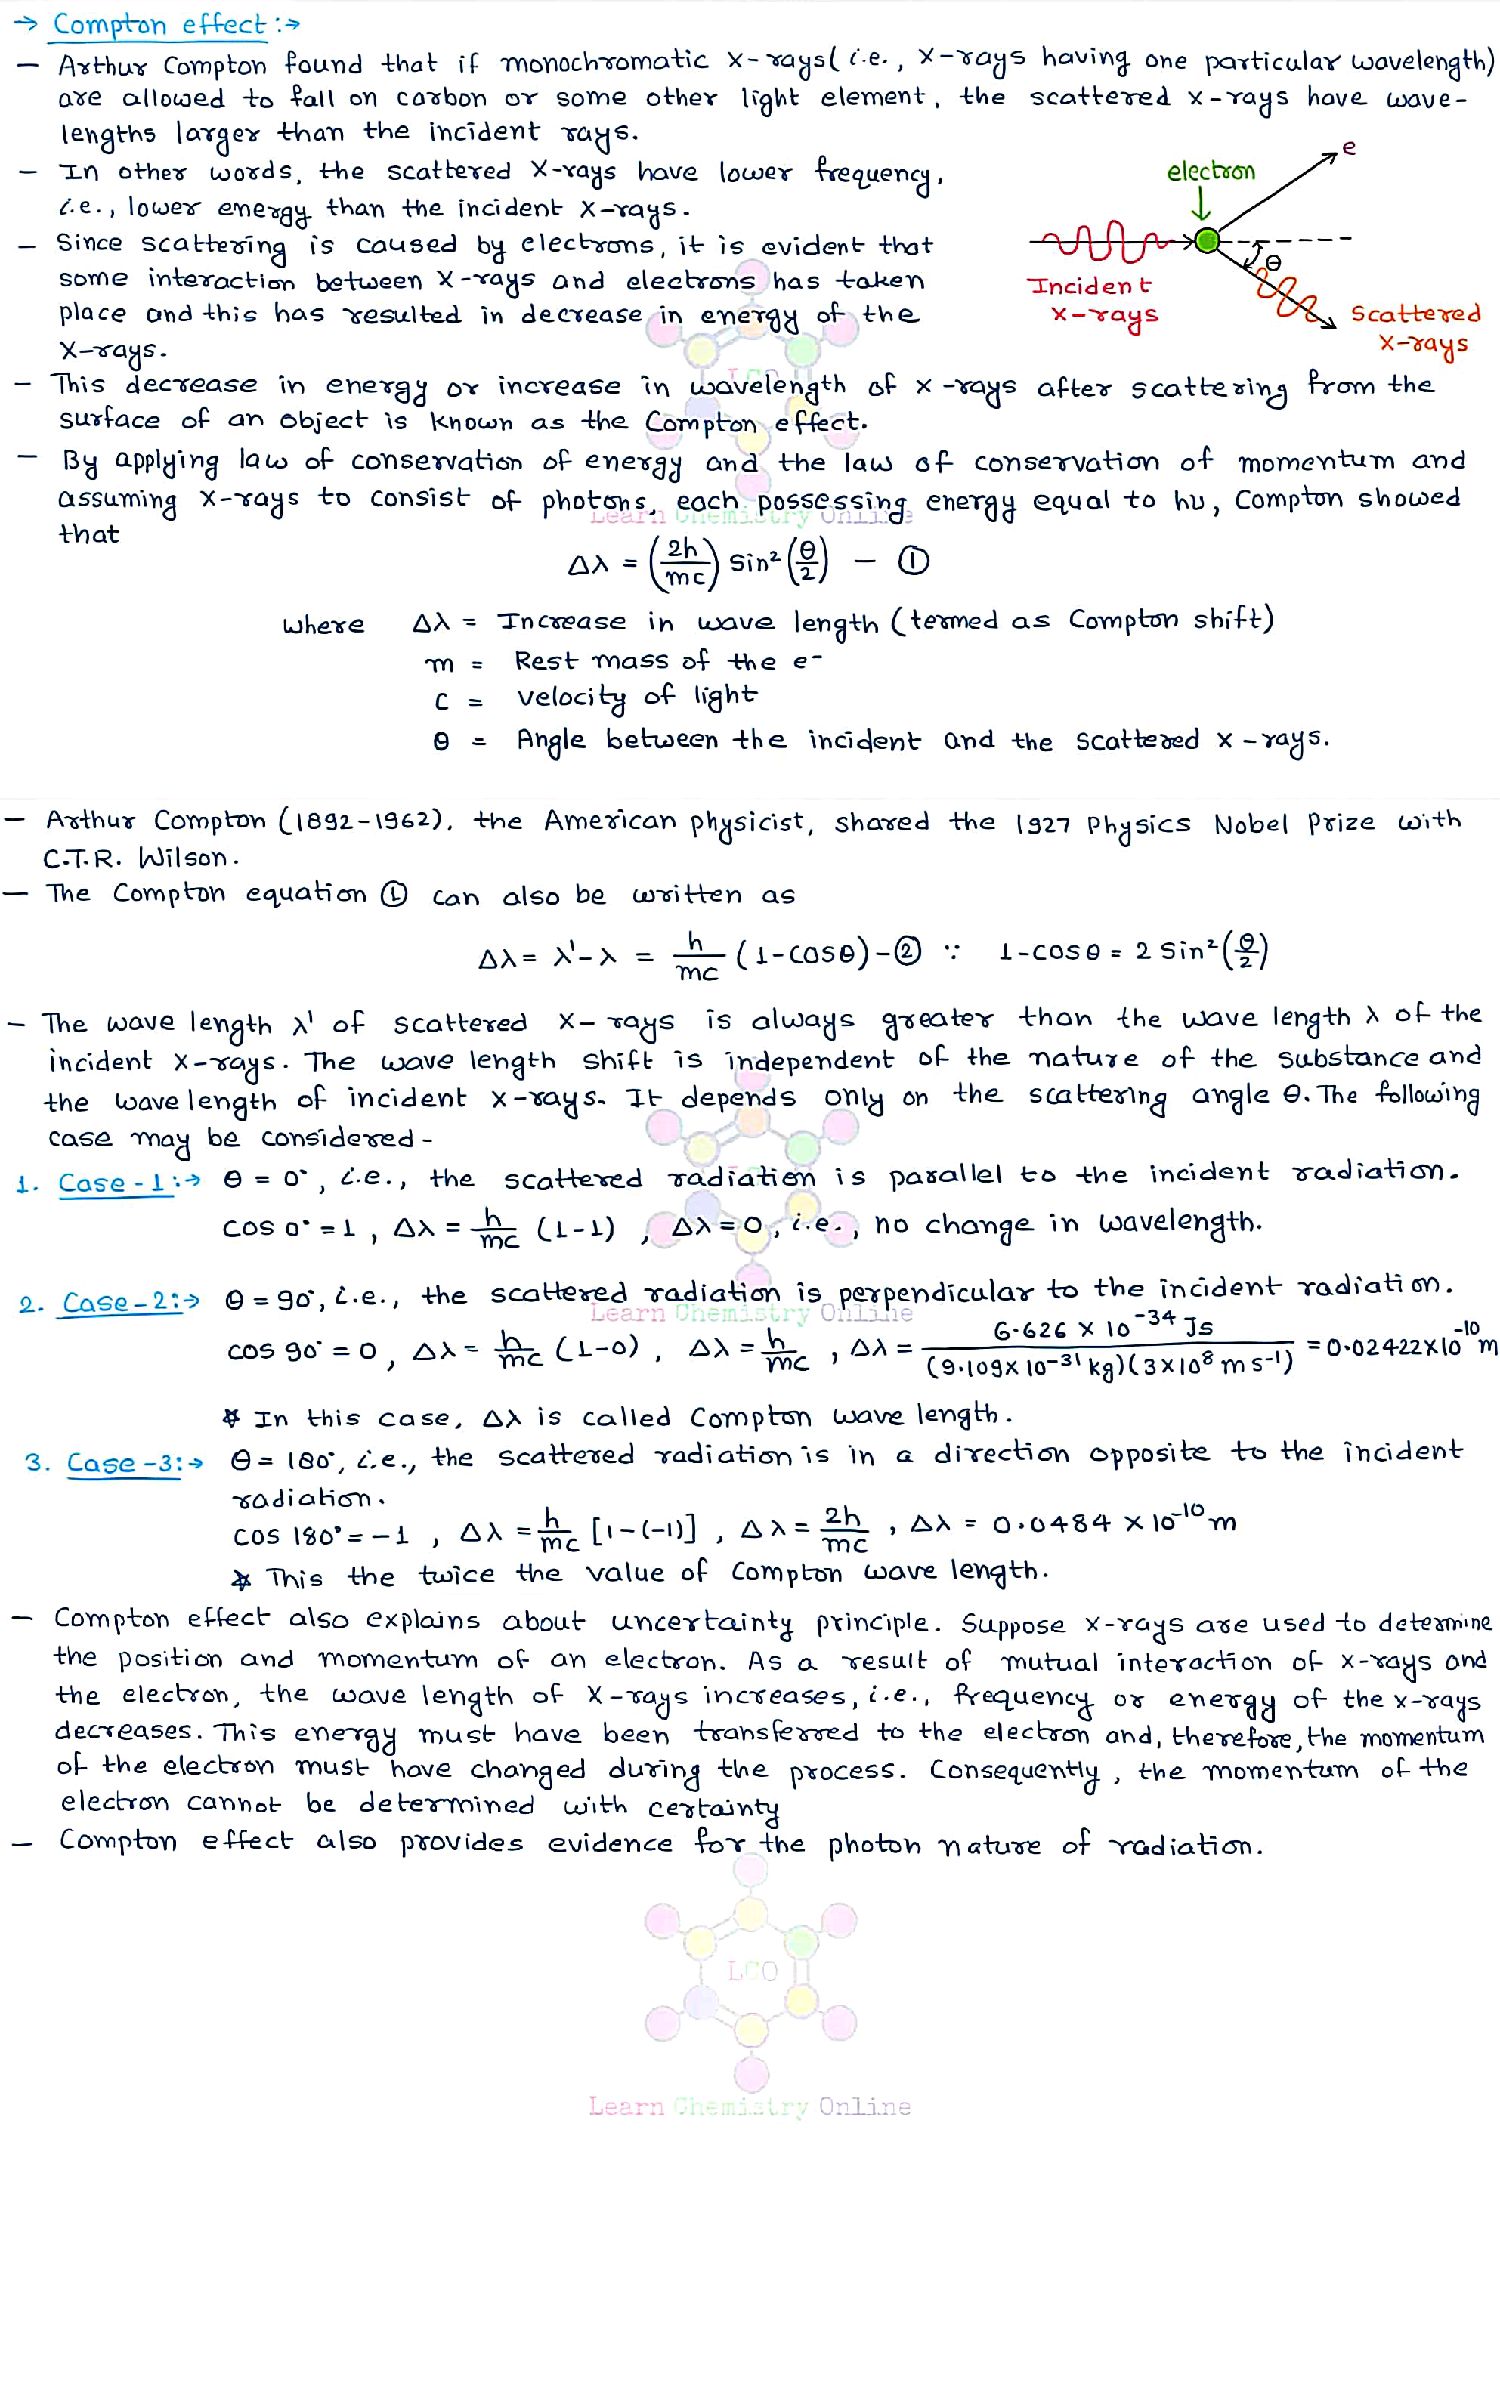 → Compton effect :→
– Arthur Compton found that if monochromatic X-rays (i.e., X-rays having one particular wavelength)
are allowed to fall on carbon or some other light element, the scattered X-rays have wave-
lengths larger than the incident rays.
– In other words, the scattered X-rays have lower frequency,
i.e., lower energy than the incident X-rays.
– Since scattering is caused by electrons, it is evident that
some interaction between X-rays and electrons has taken
place and this has resulted in decrease in energy of the
X-rays.
electron
e
θ
Incident
X-rays
Scattered
X-rays
– This decrease in energy or increase in wavelength of X-rays after scattering from the
surface of an object is known as the Compton effect.
– By applying law of conservation of energy and the law of conservation of momentum and
assuming X-rays to consist of photons, each possessing energy equal to hυ, Compton showed
that
Δλ = (2h/mc) Sin² (θ/2) – ①
where Δλ = Increase in wave length (termed as Compton shift)
m = Rest mass of the e⁻
c = velocity of light
θ = Angle between the incident and the scattered X-rays.
– Arthur Compton (1892-1962), the American physicist, shared the 1927 Physics Nobel Prize with
C.T.R. Wilson.
– The Compton equation ① can also be written as
Δλ = λ' – λ = h/mc (1-cosθ) – ② ∵ 1-cosθ = 2 Sin² (θ/2)
– The wave length λ' of scattered X-rays is always greater than the wave length λ of the
incident X-rays. The wave length shift is independent of the nature of the substance and
the wavelength of incident X-rays. It depends only on the scattering angle θ. The following
case may be considered -
1. Case - 1 :→ θ = 0°, i.e., the scattered radiation is parallel to the incident radiation.
cos 0° = 1, Δλ = h/mc (1-1), Δλ = 0, i.e., no change in wavelength.
2. Case - 2 :→ θ = 90°, i.e., the scattered radiation is perpendicular to the incident radiation.
cos 90° = 0, Δλ = h/mc (1-0), Δλ = h/mc, Δλ = 6.626 × 10⁻³⁴ Js / (9.109 × 10⁻³¹ kg)(3×10⁸ m s⁻¹) = 0.02422×10⁻¹⁰ m
* In this case, Δλ is called Compton wave length.
3. Case - 3 :→ θ = 180°, i.e., the scattered radiation is in a direction opposite to the incident
radiation.
cos 180° = -1, Δλ = h/mc [1-(-1)], Δλ = 2h/mc, Δλ = 0.0484 × 10⁻¹⁰ m
* This the twice the value of Compton wave length.
– Compton effect also explains about uncertainty principle. Suppose X-rays are used to determine
the position and momentum of an electron. As a result of mutual interaction of X-rays and
the electron, the wave length of X-rays increases, i.e., frequency or energy of the X-rays
decreases. This energy must have been transferred to the electron and, therefore, the momentum
of the electron must have changed during the process. Consequently, the momentum of the
electron cannot be determined with certainty
– Compton effect also provides evidence for the photon nature of radiation.
LCO
Learn Chemistry Online
LCO
Learn Chemistry Online
LCO
Learn Chemistry Online